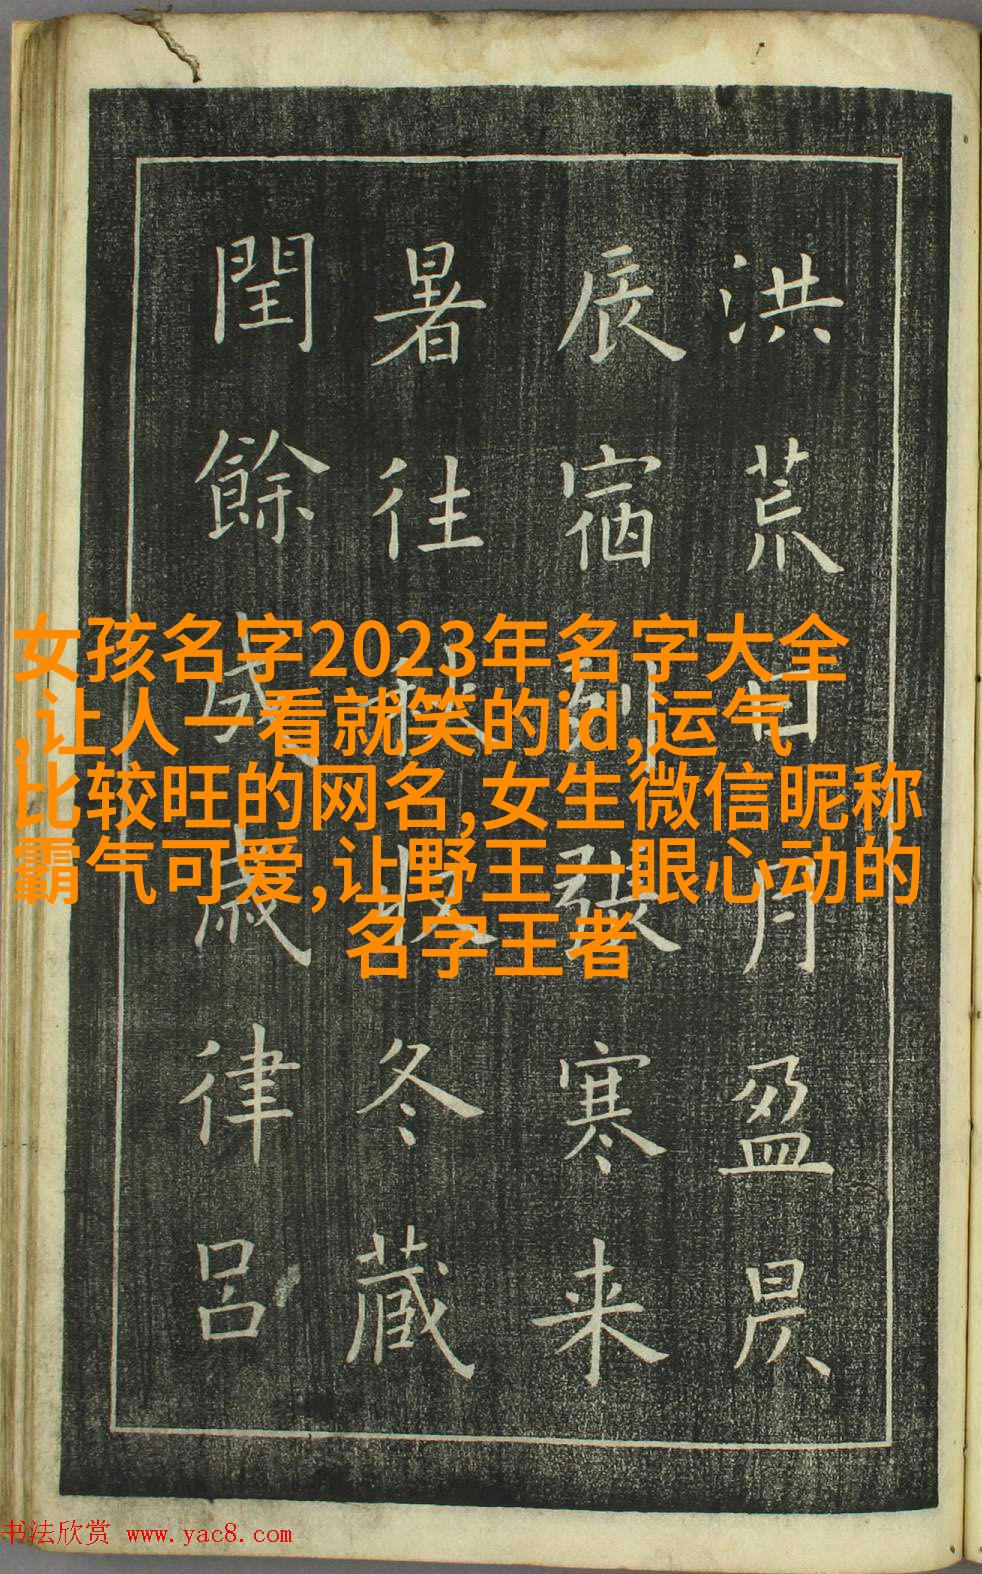 洪荒日月盈昃
辰宿列張寒来
暑往秋收冬藏
閏餘成歲律呂
女孩名字2023年名字大全
,让人一看就笑的id,运气
比较旺的网名,女生微信昵称
霸气可爱,让野王一眼心动的
名字王者
书法欣赏 www.yac8.com